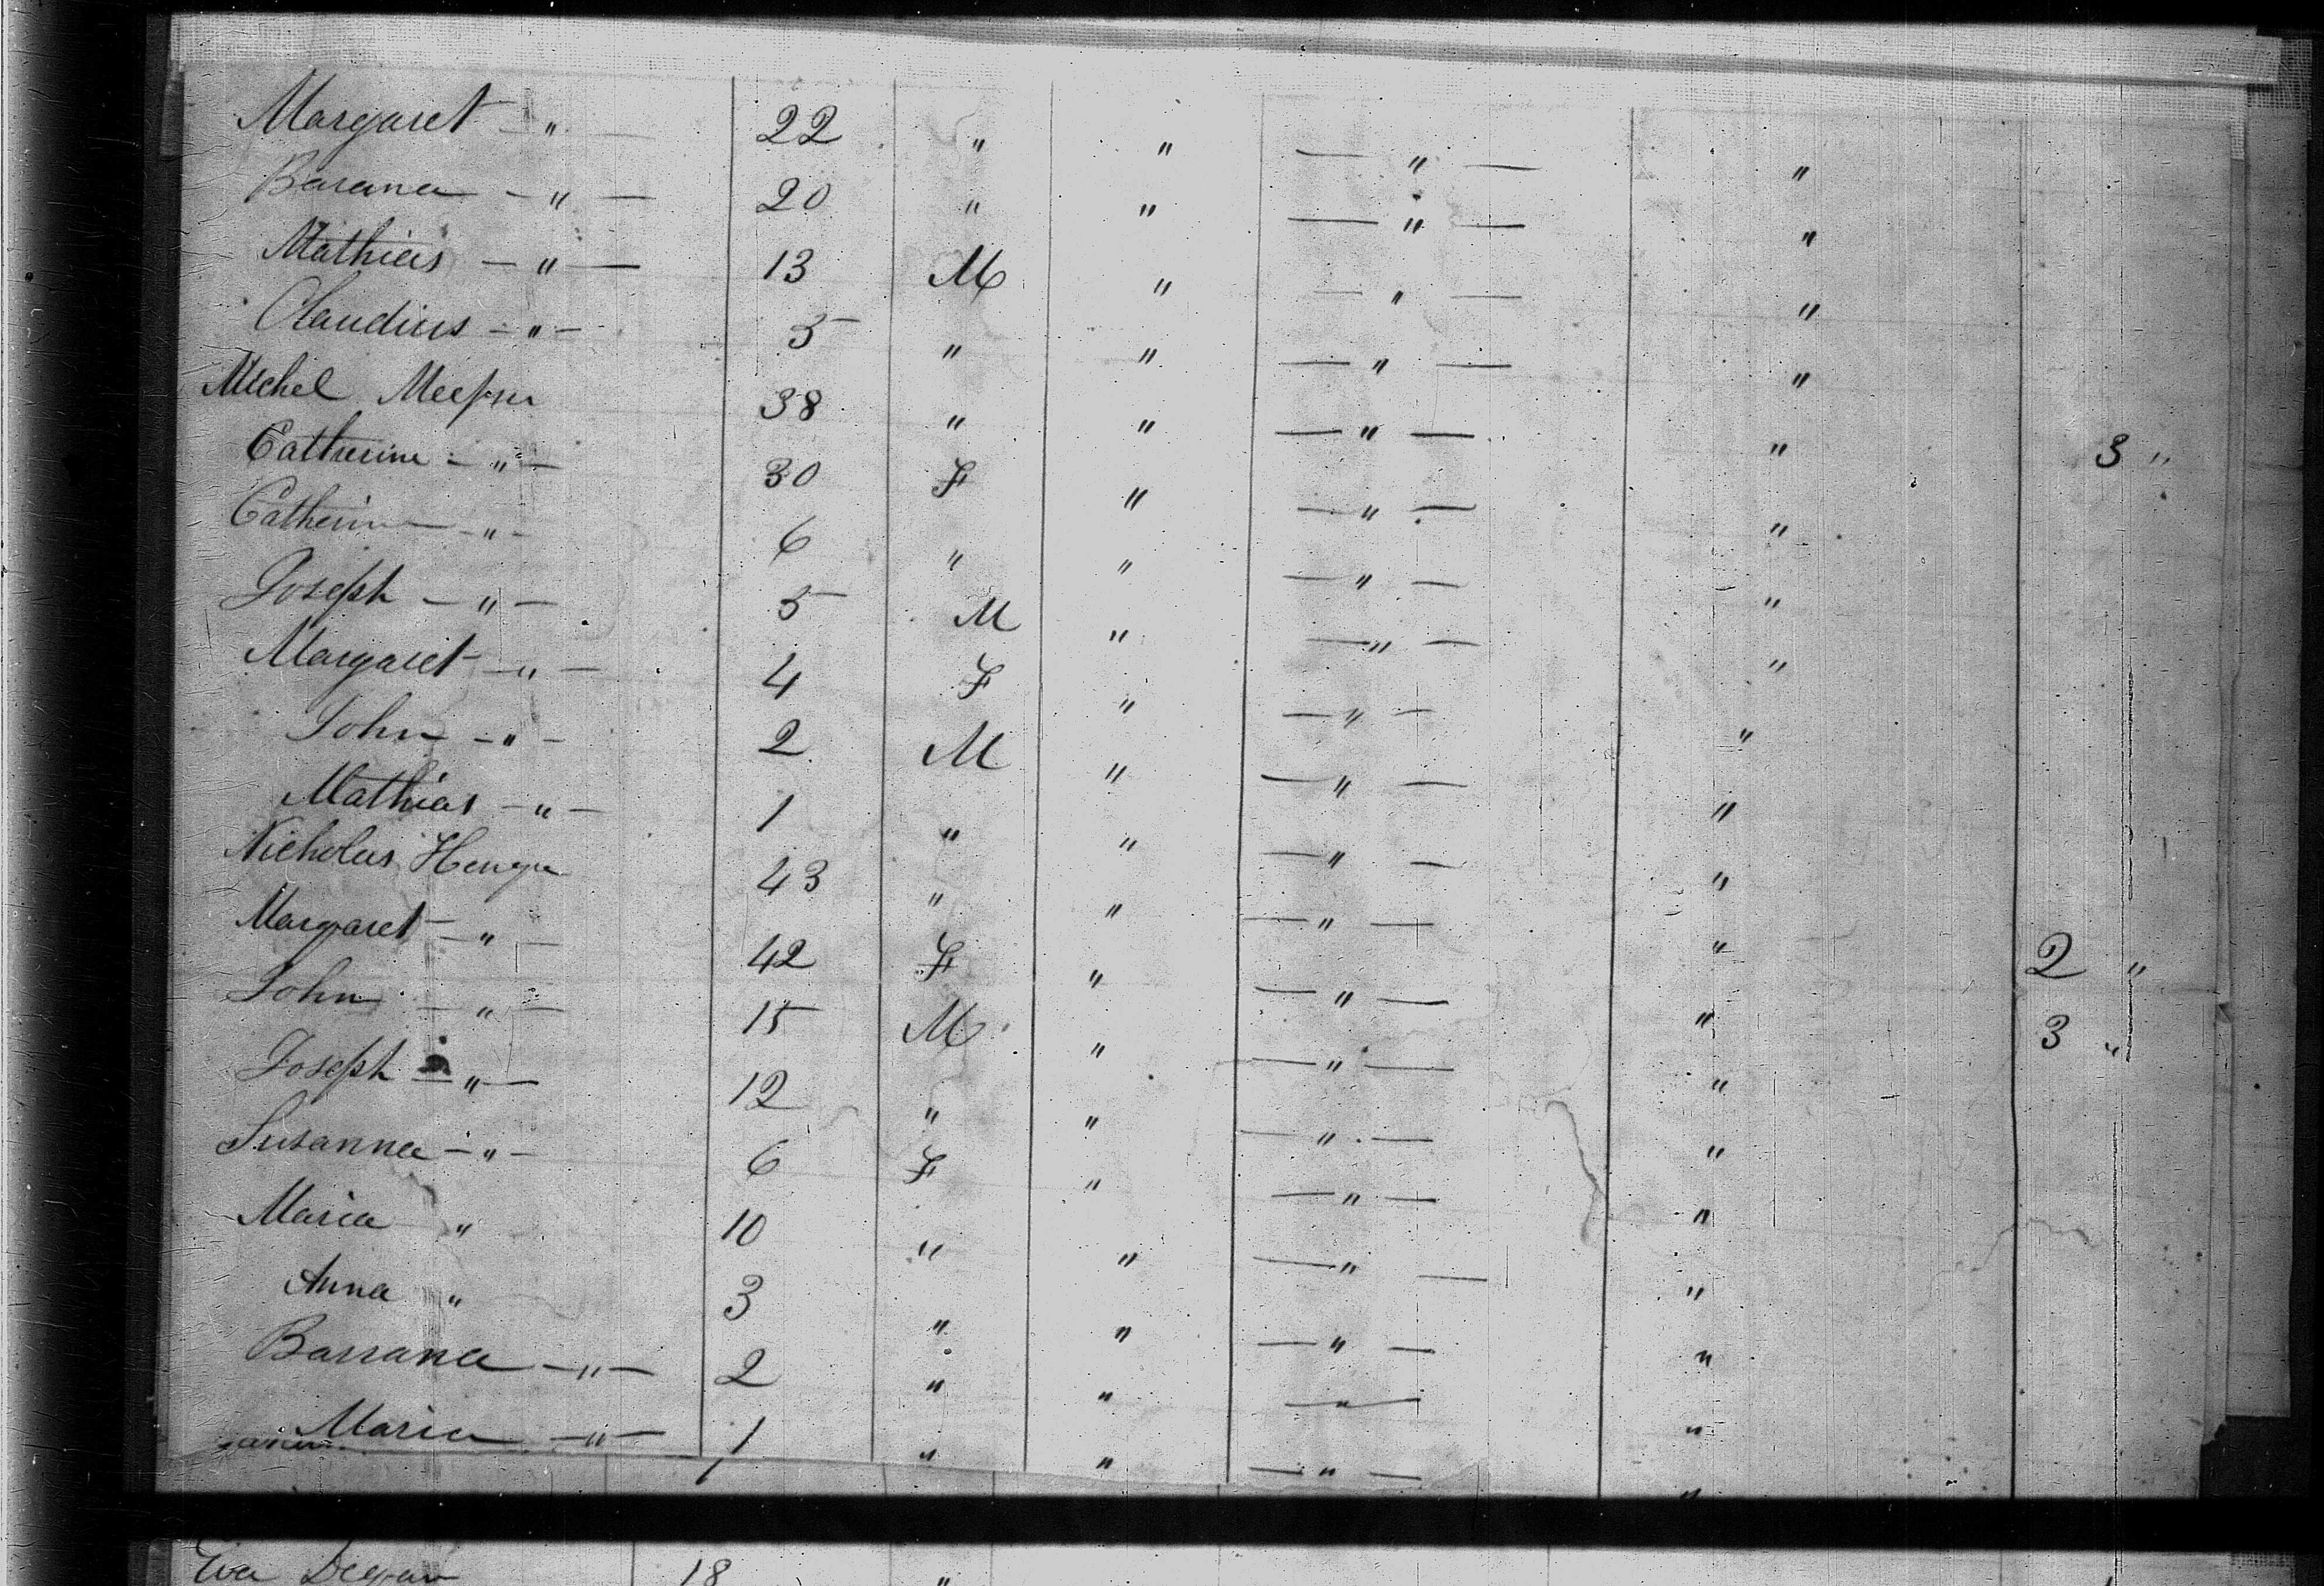 Margaret — " — 22 " " — " — "
Barana — " — 20 " " — " — "
Mathias — " — 13 M " — " — "
Claudius — " — 5 " " — " — "
Michel 38 " " — " — " 3 "
Catherine — " — 30 F " — " — "
Catherine — " — 6 " " — " — "
Joseph — " — 5 M " — " — "
Margaret — " — 4 F " — " — "
John — " — 2 M " — " — "
Mathias — " — 1 " " — " — "
Nicholas 43 " " — " — " 2 "
Margaret — " — 42 F " — " — " 3 "
John — " — 15 M " — " — "
Joseph — " — 12 " " — " — "
Susanna — " — 6 F " — " — "
Maria " 10 " " — " — "
Anna " 3 " " — " — "
Barrana — " — 2 " " — " — "
Maria — " — 1 " " — " — "
Eva 18 "